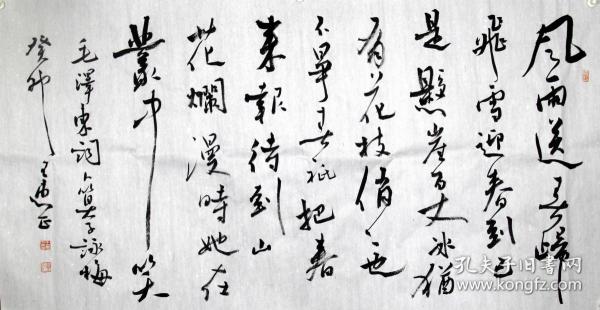 風雨送春歸
飛雪迎春到已
是懸崖百丈冰猶
有花枝俏〻也
不爭春祇把春
來報待到山
花爛漫時她在
叢中笑
毛澤東詞卜算子詠梅
癸卯
孔夫子旧书网
kongfz.com